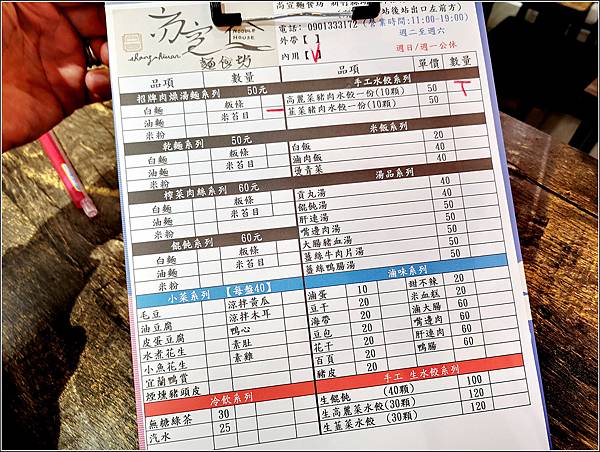 NOODLE HOUSE
shang shiuan
麵食坊
尚宣麵餐坊
站後站出口左前方)
電話:0901333172 (營業時間:11:00-19:00)
外帶【 】 週二至週六
內用【V】 週日/週一公休
品項 數量 品項 單價 數量
招牌肉燥湯麵系列 50元 手工水餃系列
白麵 粄條 高麗菜豬肉水餃一份(10顆) 50
油麵 米苔目 韮菜豬肉水餃一份(10顆) 50
米粉
乾麵系列 50元 米飯系列
白麵 粄條 白飯 20
油麵 米苔目 滷肉飯 40
米粉 燙青菜 40
榨菜肉絲系列 60元 湯品系列
白麵 粄條 貢丸湯 40
油麵 米苔目 餛飩湯 40
米粉 肝連湯 50
餛飩系列 60元 嘴邊肉湯 50
白麵 粄條 大腸豬血湯 50
油麵 米苔目 薑絲牛肉片湯 50
米粉 薑絲鴨腸湯 50
小菜系列 【每盤40】 滷味系列
毛豆 涼拌黃瓜 滷蛋 10 甜不辣 20
油豆腐 涼拌木耳 豆干 20 米血糕 20
皮蛋豆腐 鴨心 海帶 20 滷大腸 60
水煮花生 素肚 豆包 20 嘴邊肉 60
小魚花生 素雞 花干 20 肝連肉 60
宜蘭鴨賞 百頁 20 鴨腸 60
煙燻豬頭皮 豬皮 20
冷飲系列 手工 生水餃系列
無糖綠茶 30 生餛飩 (40顆) 100
汽水 25 生高麗菜水餃 (30顆) 120
生韮菜水餃 (30顆) 120